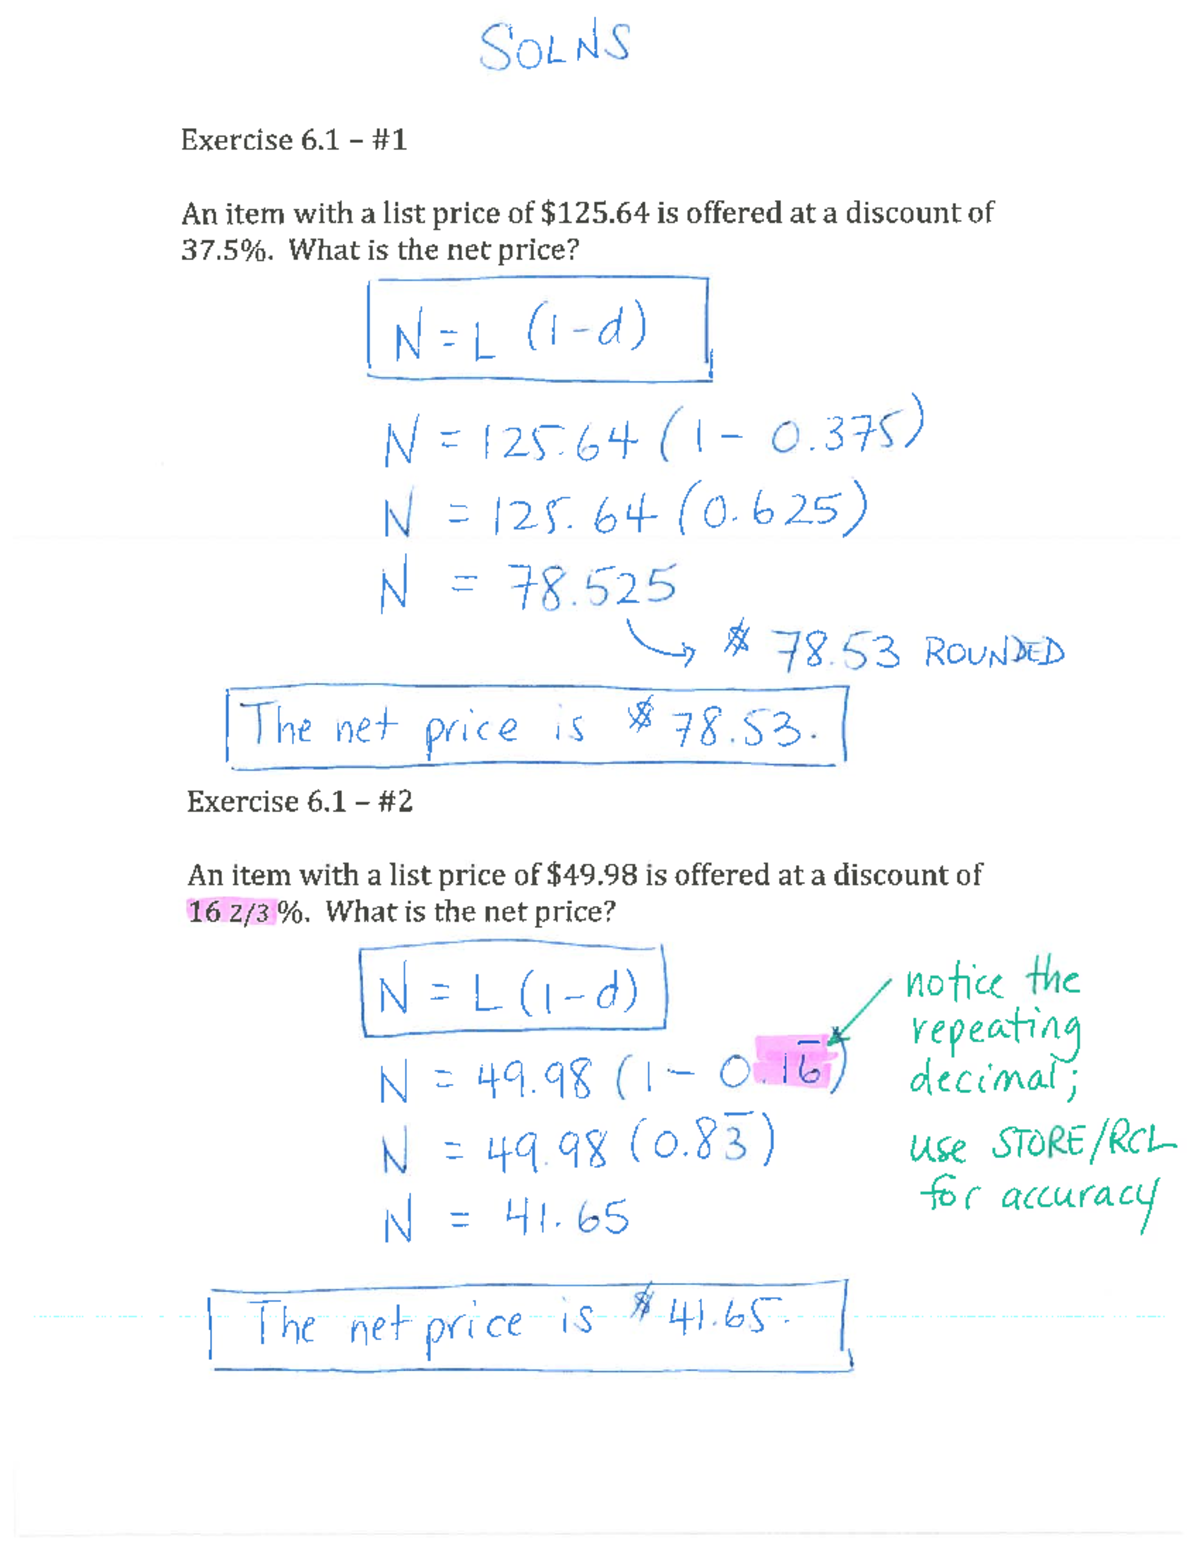 SOLNS
Exercise 6.1 – #1
An item with a list price of $125.64 is offered at a discount of
37.5%. What is the net price?
N = L (1-d)
N = 125.64 (1 - 0.375)
N = 125.64 (0.625)
N = 78.525
$ 78.53 ROUNDED
The net price is $ 78.53.
Exercise 6.1 – #2
An item with a list price of $49.98 is offered at a discount of
16 2/3 %. What is the net price?
N = L (1-d)
N = 49.98 (1 - 0.16̅)
N = 49.98 (0.83̅)
N = 41.65
notice the
repeating
decimal;
use STORE/RCL
for accuracy
The net price is $ 41.65.